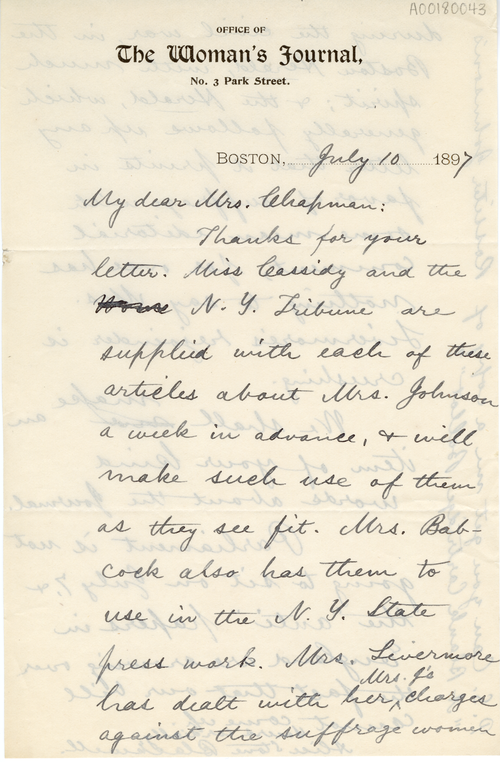 A00180043
OFFICE OF
The Woman's Journal,
No. 3 Park Street.
BOSTON, July 10 1897
My dear Mrs. Chapman:
Thanks for your
letter. Miss Cassidy and the
N. Y. Tribune are
supplied with each of these
articles about Mrs. Johnson
a week in advance, & will
make such use of them
as they see fit. Mrs. Bab-
cock also has them to
use in the N. Y. State
press work. Mrs. Livermore
Mrs. J's
has dealt with her charges
against the suffrage women